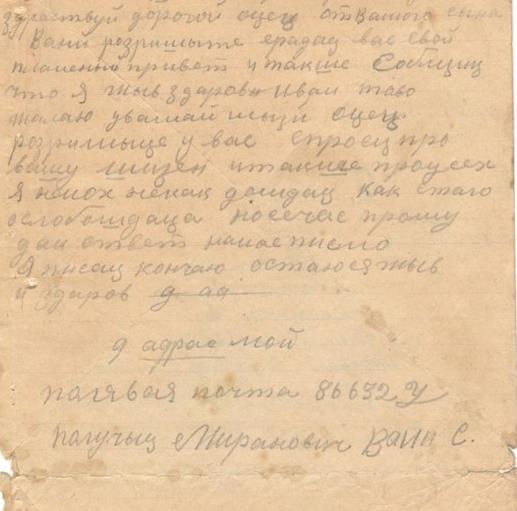 здраствуй дорогой оцец от Вашого сына
Вани розришыте ерадац вас свой
пламеный привет и такше Собщиц
что я жыв здаров и вам таво
желаю уважаймызй оцец
розришыце у вас спросц про
вашу жизен и также про усех
Я немох некак дождац как стаго
ослобождаца посечас прошу
дай ответ на мое писмо
Я писац кончаю остаюся жыв
и здаров
д адрас мой
палявая почта 86632 У
палучыц Миранович Вани С.